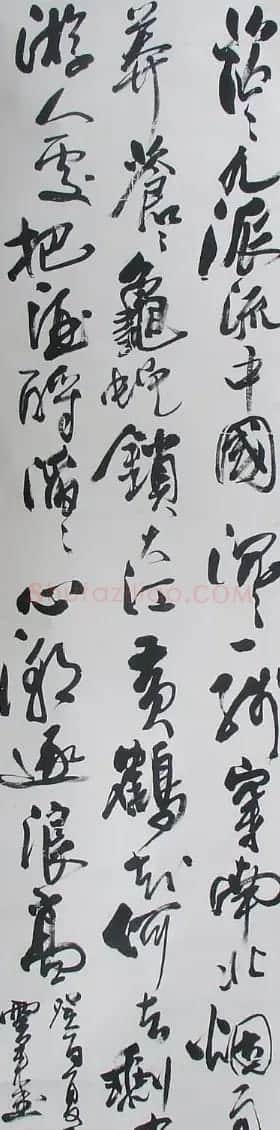 茫〻九派流中國沉〻一線穿南北烟雨
莽蒼〻龜蛇鎖大江黃鶴知何去剩有
游人處把酒酹滔〻心潮逐浪高
癸酉夏
Shufaziliao.COM